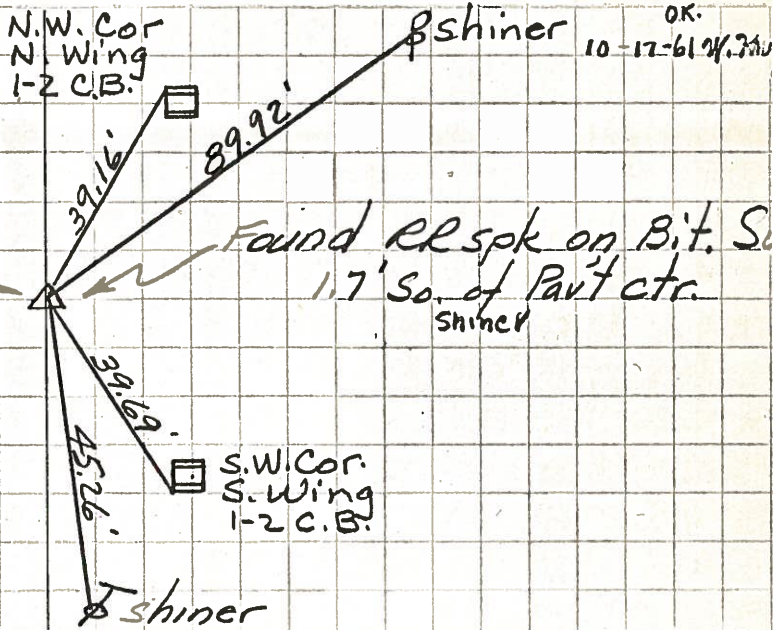 N.W. Cor
N. Wing
1-2 C.B.
shiner
O.K.
10-17-61
39.16'
89.92'
Found RR spk on Bit.
1.7' So. of Pav't ctr.
shiner
39.69'
45.26'
S.W. Cor.
S. Wing
1-2 C.B.
shiner